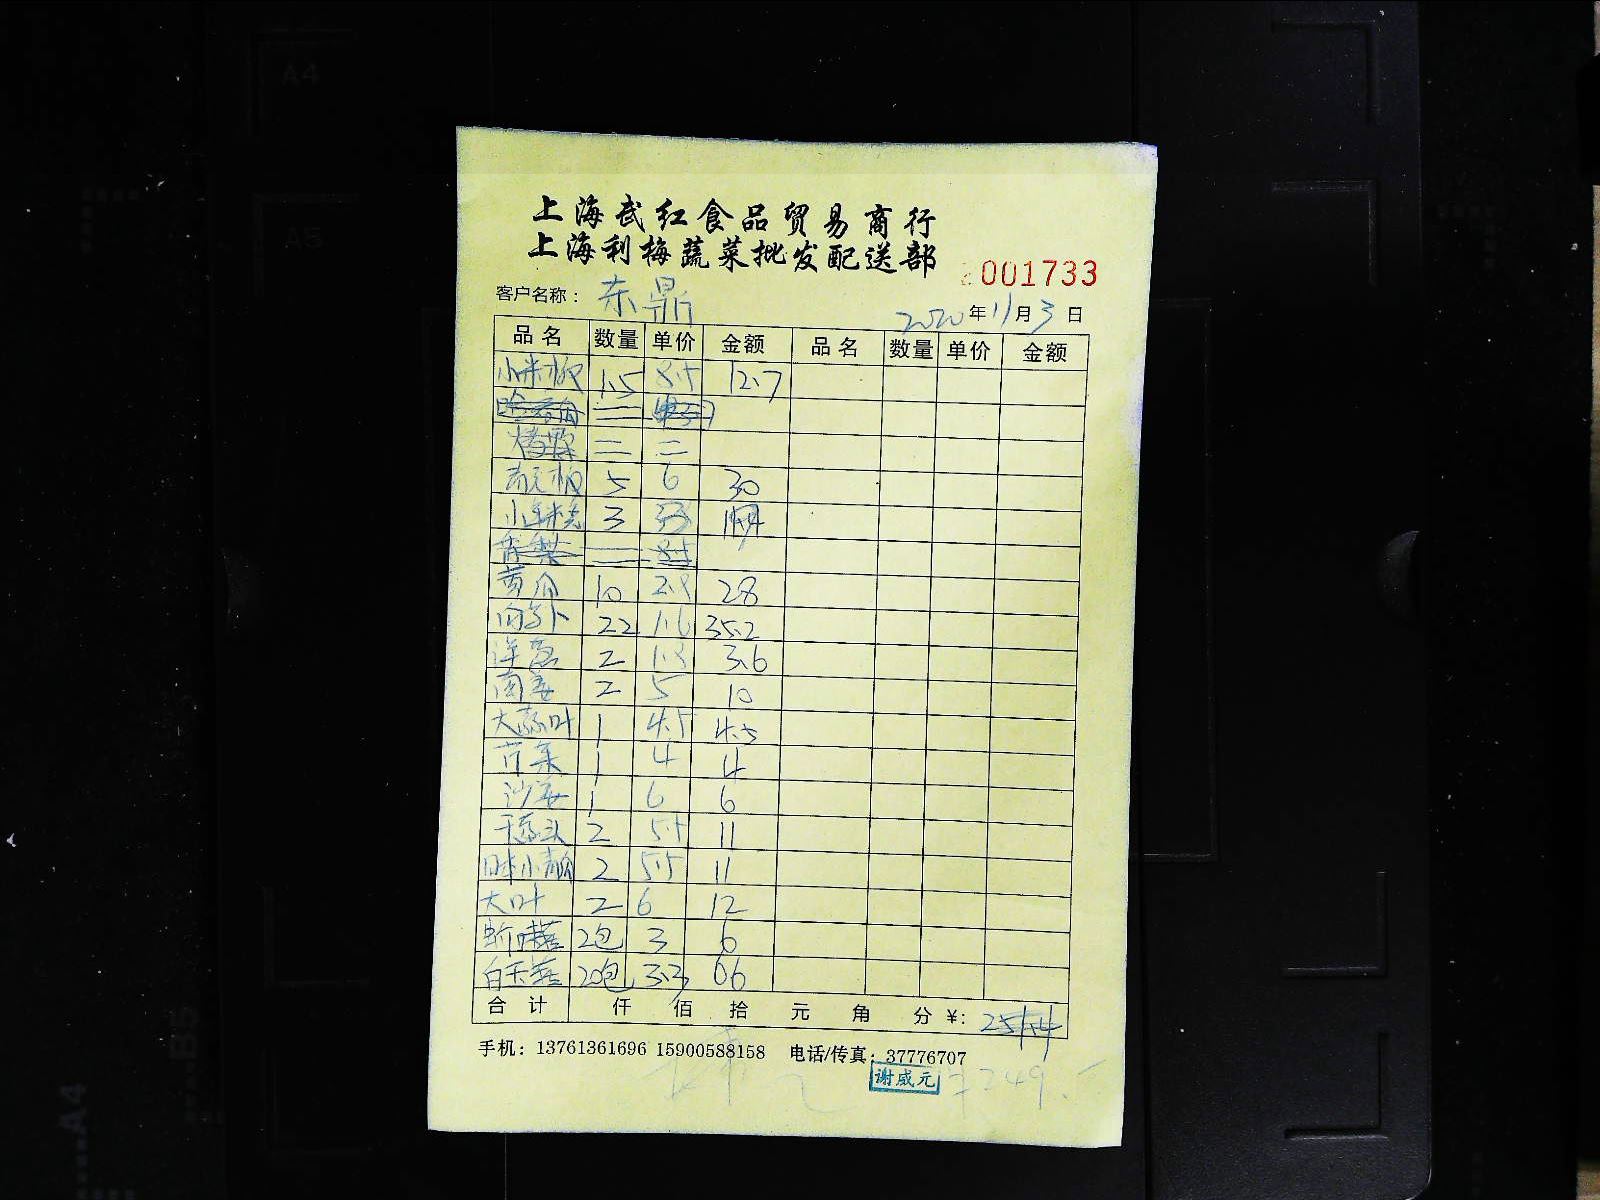 上海武红食品贸易商行
上海利梅蔬菜批发配送部
001733
客户名称： 东鼎
2020年11月3日
品名 数量 单价 金额 品名 数量 单价 金额
小米椒 1.5 8.5 12.7
5 6 30
3
8.5
黄瓜 10 2.8 28
白萝卜 22 1.6 35.2
洋葱 2 1.8 3.6
南姜 2 5 10
大蒜叶 1 4.5 4.5
芹菜 1 4 4
沙姜 1 6 6
干葱头 2 5.5 11
日本小青瓜 2 5.5 11
大叶 2 6 12
蟹味菇 2包 3 6
白玉菇 20包 3.3 66
合计 仟 佰 拾 元 角 分 ¥:
手机：13761361696 15900588158 电话/传真：37776707
谢威元
249.5
A4
A5
B5
A4